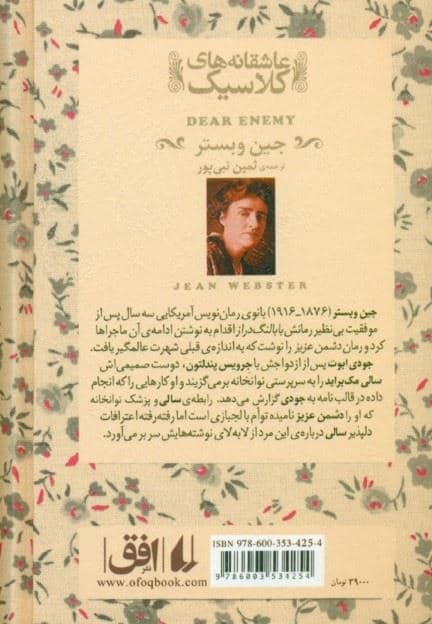 عاشقانه‌های
کلاسیک
DEAR ENEMY
جین وبستر
ترجمه‌ی ثمین نبی‌پور
JEAN WEBSTER
جین وبستر (۱۸۷۶_۱۹۱۶) بانوی رمان‌نویس آمریکایی سه سال پس از
موفقیت بی‌نظیر رمانش بابالنگ‌دراز اقدام به نوشتن ادامه‌ی آن ماجراها
کرد و رمان دشمن عزیز را نوشت که به اندازه‌ی قبلی شهرت عالمگیر یافت.
جودی ابوت پس از ازدواجش با جرویس پندلتون، دوست صمیمی‌اش
سالی مک‌براید را به سرپرستی نوانخانه برمی‌گزیند و او کارهایی را که انجام
داده در قالب نامه به جودی گزارش می‌دهد. رابطه‌ی سالی و پزشک نوانخانه
که او را دشمن عزیز نامیده توأم با لجبازی است اما رفته‌رفته اعترافات
دلپذیر سالی درباره‌ی این مرد از لابه‌لای نوشته‌هایش سر بر می‌آورد.
نشر افق
www.ofoqbook.com
ISBN 978-600-353-425-4
9 786003 534254
۳۹۰۰۰ تومان